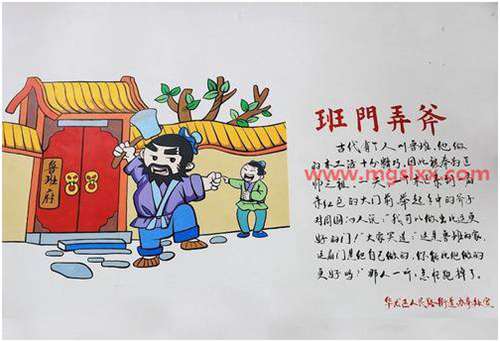 鲁班府
班門弄斧
www.mgslxx.com
古代有个人叫鲁班,他做
的木工活十分精巧,因此被奉为匠
师之祖。一天,一个木匠来到一扇
朱红色的大门前,举起手中的斧子
对周围的人说“我可以做出比这更
好的门!”大家笑道:“这是鲁班的家,
这扇门是他自己做的,你能比他做的
更好吗?”那人一听,急忙跑掉了。
华龙区人民路街道办事处宣